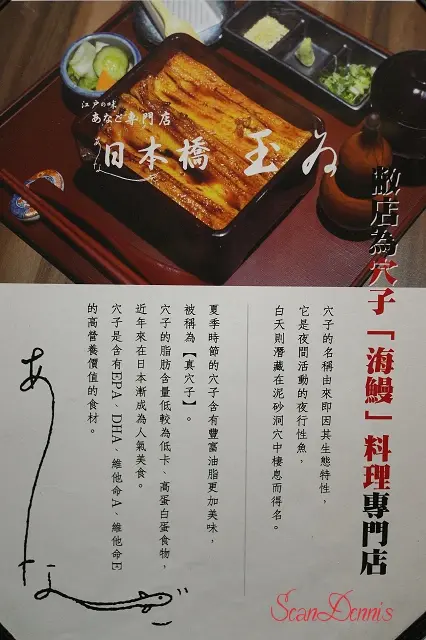 江戸の味
あなご専門店
日本橋 玉ゐ
敝店為穴子「海鰻」料理專門店
穴子的名稱由來即因其生態特性，
它是夜間活動的夜行性魚，
白天則潛藏在泥砂洞穴中棲息而得名。
夏季時節的穴子含有豐富油脂更加美味，
被稱為【真穴子】。
穴子的脂肪含量低較為低卡、高蛋白蛋食物，
近年來在日本漸成為人氣美食。
穴子是含有EPA、DHA、維他命A、維他命E
的高營養價值的食材。
あなご
SeanDennis